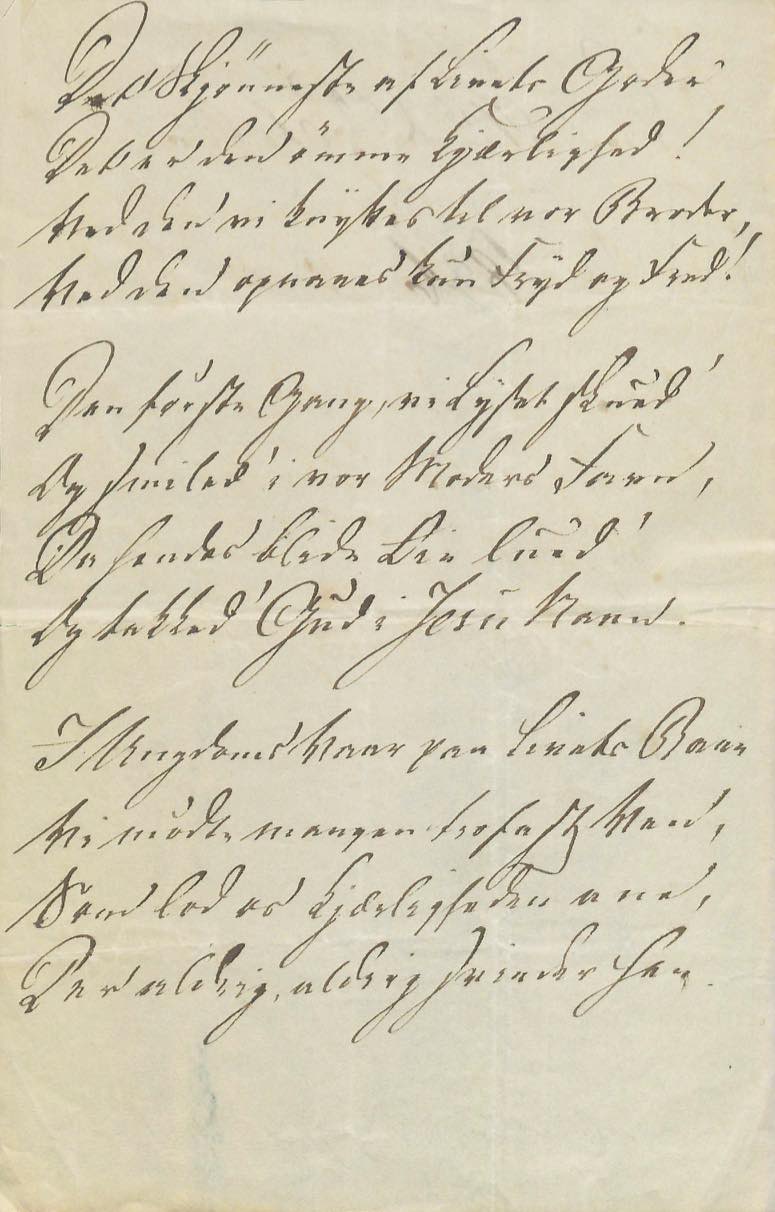 Det Skjönneste af Livets Goder
Det er den ömme Kjærlighed!
Ved den vi knyttes til vor Broder,
Ved den opnaaes kun Fryd og Fred!
Den förste Gang, vi Lyset skued'
Og smiled' i vor Moders Favn,
Da hendes blide Öie lued'
Og takked' Gud i Jesu Navn.
I Ungdoms Vaar paa Livets Bane
Vi mödte mangen trofast Ven,
Som lod os Kjærligheden ane,
Der aldrig, aldrig svinder hen.